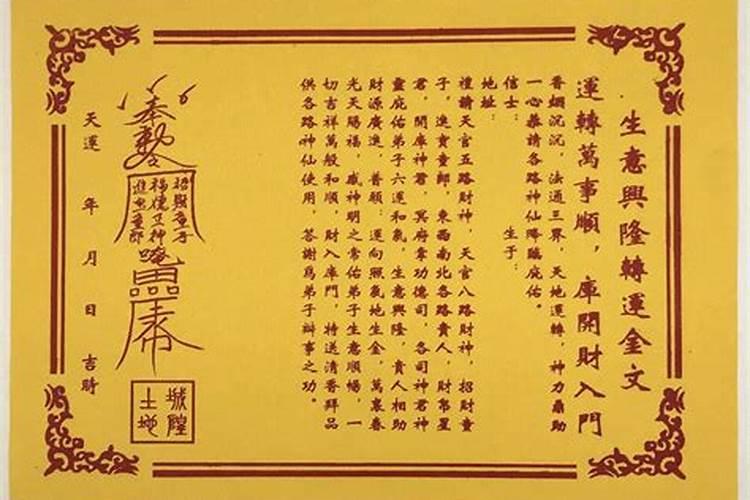 生意興隆轉運金文
運轉萬事順，庫開財入門
香烟沉沉，法通三界，天地運轉，神力鼎助
一心恭請各路神仙降臨庇佑。
信士：　　　生于：
地址：
禮請天官五路財神，天官八路財神，招財童
子，進寶童郎，東西南北各路貴人，財帛星
君，開庫神君，冥府掌功德司，各司神君神
靈庇佑弟子六運和氣，生意興隆，貴人相助
財源廣進，普願：運向照氣地生金，萬裏春
光天賜福，感神明之常佑弟子生意順暢，一
切吉祥萬般和順，財入庫門，特送清香拜品
供各路神仙使用，答謝爲弟子辦事之功。
奉勅令
招財童子
福德正神
進寶童郎
城隍
土地
天運　年　月　日　吉時